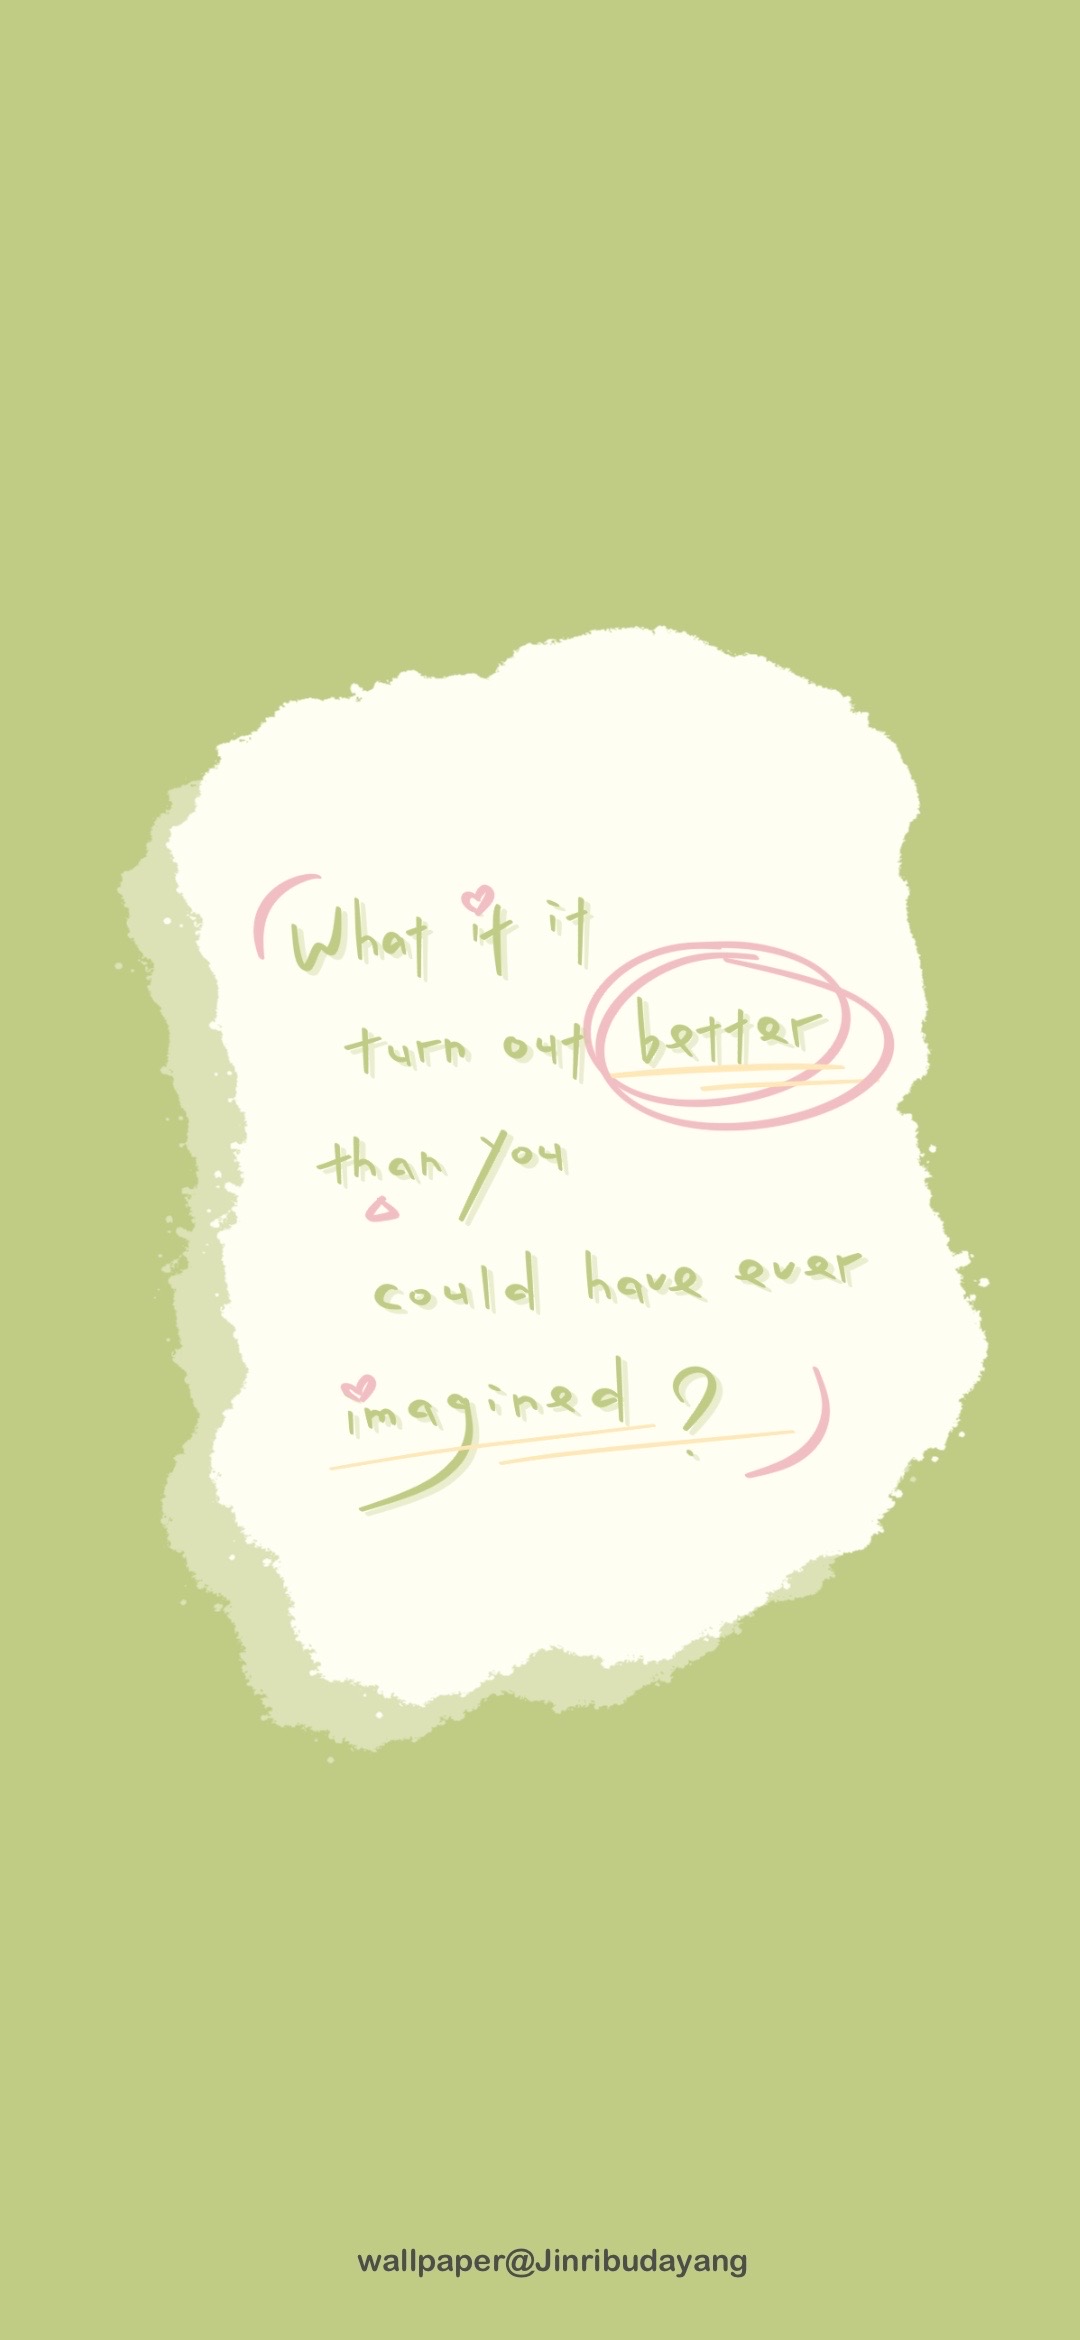 What if it
turn out better
than you
could have ever
imagined?
wallpaper@Jinribudayang